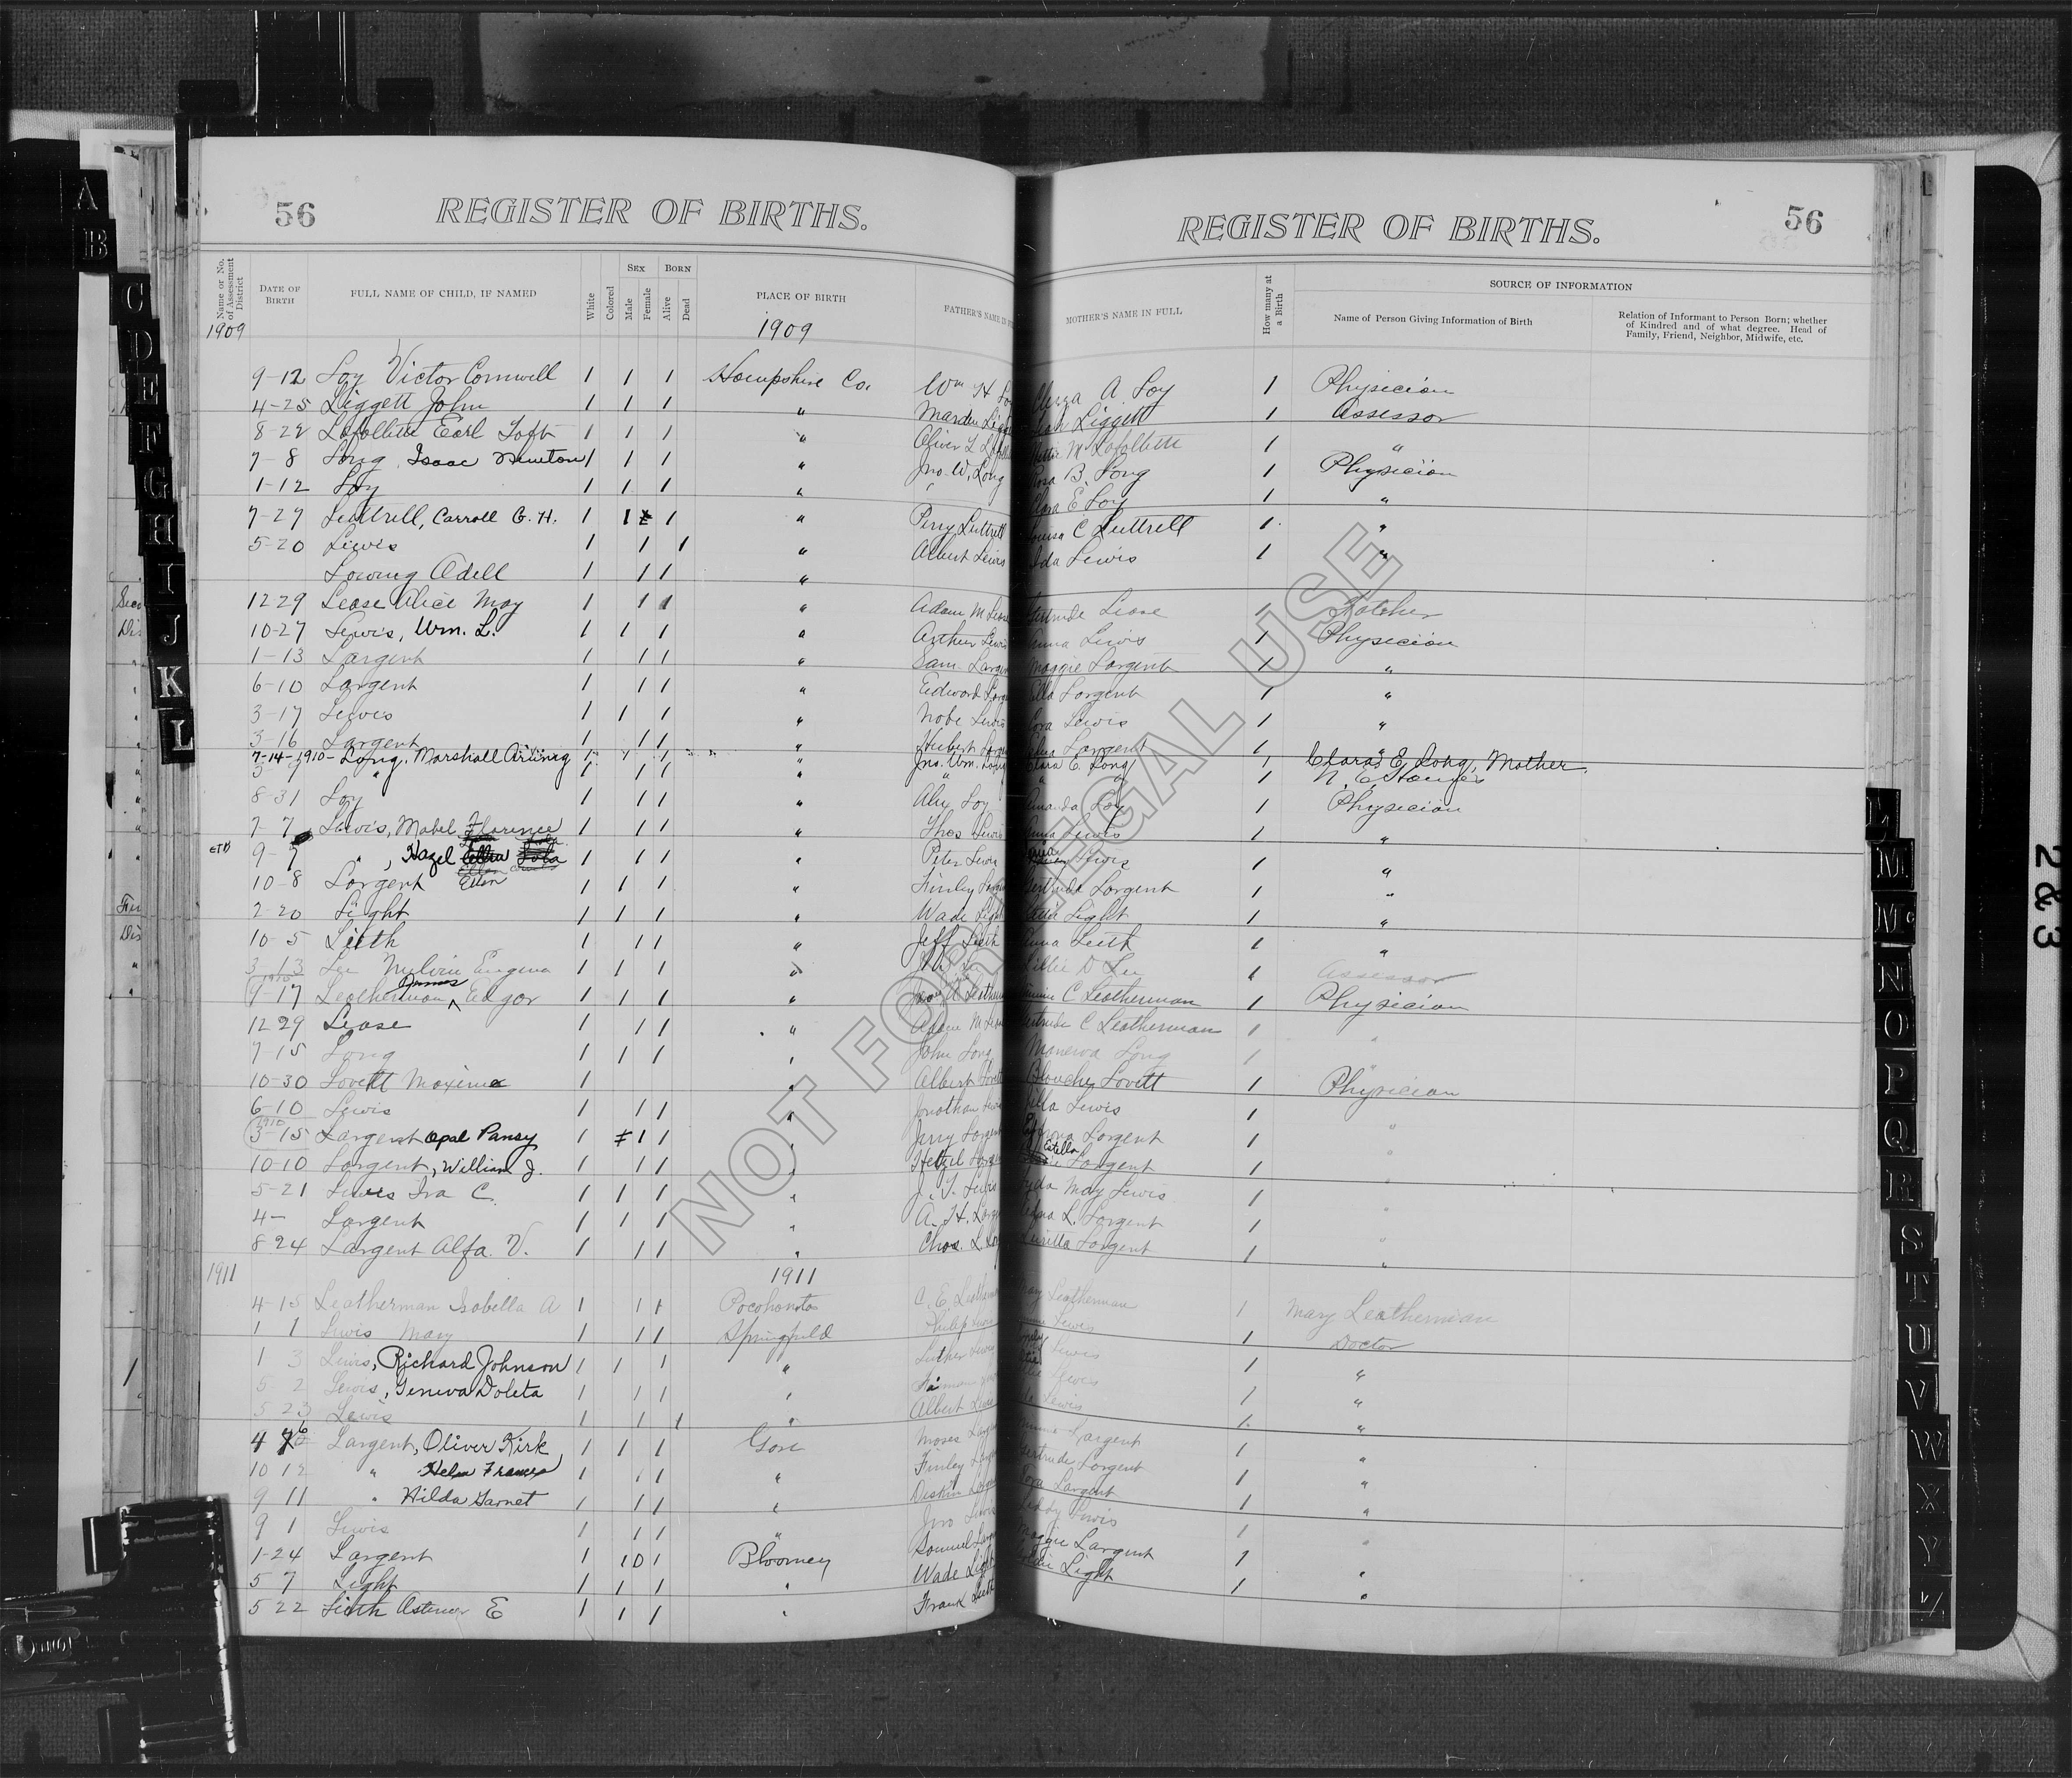 56 REGISTER OF BIRTHS.
REGISTER OF BIRTHS. 56
Name or No. of Assessment District
DATE OF BIRTH
FULL NAME OF CHILD, IF NAMED
White
Colored
SEX
Male
Female
BORN
Alive
Dead
PLACE OF BIRTH
FATHER'S NAME IN
MOTHER'S NAME IN FULL
How many at a Birth
SOURCE OF INFORMATION
Name of Person Giving Information of Birth
Relation of Informant to Person Born; whether
of Kindred and of what degree. Head of
Family, Friend, Neighbor, Midwife, etc.
1909 1909
9-12 Loy Victor Cornwell 1 1 1 Hampshire Co. Wm H Loy A Loy 1 Physician
4-25 Liggett John 1 1 1 " Liggett 1 Assessor
8-22 Lafollette Earl 1 1 1 " Oliver L M Lafollette 1 "
7-8 Long, Isaac Newton 1 1 1 " Jno. W. Long Rosa B. Long 1 Physician
1-12 Loy 1 1 1 " Clara E Loy 1 "
7-27 Luttrell, Carroll G. H. 1 1 1 " Perry Luttrell Louisa C Luttrell 1 "
5-20 Lewis 1 1 1 " Albert Lewis Ida Lewis 1 "
Adell 1 1 1 "
12-29 Lease Alice May 1 1 1 " Adam M Lease Gertrude Lease 1 Father
10-27 Lewis, Wm. L. 1 1 1 " Arthur Lewis Anna Lewis 1 Physician
1-13 Largent 1 1 1 " Sam Largent Maggie Largent 1 "
6-10 Largent 1 1 1 " Edward Largent Ella Largent 1 "
3-17 Lewis 1 1 1 " Nobe Lewis Cora Lewis 1 "
3-16 Largent 1 1 1 " Hubert Largent Largent 1 "
7-14-1910- Long, Marshall 1 1 1 " Jno. Wm. Long Clara E. Long 1 Clara E Long, Mother.
" 1 1 1 " " " 1 N. E.
8-31 Loy 1 1 1 " Loy Amanda Loy 1 Physician
7-7 Lewis, Mabel Florence 1 1 1 " Thos Lewis Anna Lewis 1 "
9-7 ", Hazel Ellen 1 1 1 " Peter Lewis Lewis 1 "
10-8 Largent 1 1 1 " Finley Largent Gertrude Largent 1 "
2-20 Light 1 1 1 " Wade Light Light 1 "
10-5 Lieth 1 1 1 " Jeff Lieth Anna Leith 1 "
3-13 Lee Melvin Eugene 1 1 1 " Lillie D Lee 1 Assessor
9-17 Leatherman James Edgar 1 1 1 " C Leatherman 1 Physician
12 29 Lease 1 1 1 " Adam M Lease Gertrude C Leatherman 1 "
7-15 Long 1 1 1 " John Long Long 1
10-30 Lovett Maxine 1 " Albert Lovett Blanche Lovett 1 Physician
6-10 Lewis 1 1 1 " Jonathan Lewis Lewis 1 "
1910
3-15 Largent Opal Pansy 1 1 1 " Jerry Largent Largent 1 "
10-10 Largent, William J. 1 1 1 " Hetzel Largent Estella Largent 1 "
5-21 Lewis Ira C. 1 1 1 " J. T. Lewis May Lewis 1 "
4- Largent 1 1 1 " A. H. Largent L. Largent 1 "
8 24 Largent Alfa V. 1 1 1 " Chas. L. Largent 1 "
1911 1911
4-15 Leatherman Isabella A 1 1 1 Pocohontas C. E. Leatherman Mary Leatherman 1 Mary Leatherman
1 1 Lewis Mary 1 1 1 Springfield Philip Lewis 1 Doctor
1 3 Lewis, Richard Johnson 1 1 1 " Luther Lewis Lewis 1 "
5 2 Lewis, Geneva Doleta 1 1 1 " Lewis 1 "
5 23 Lewis 1 1 1 " Albert Lewis Lewis 1 "
4 Largent, Oliver Kirk 1 1 1 Gore Moses Largent Largent 1 "
10 12 " Helen Frances 1 1 1 " Finley Largent Gertrude Largent 1 "
9 11 " Hilda Garnet 1 1 1 " Largent 1 "
9 1 Lewis 1 1 1 " Jno Lewis Lewis 1 "
1-24 Largent 1 1 0 1 Bloomery Samuel Largent Maggie Largent 1 "
5 7 Light 1 1 1 " Wade Light Light 1 "
5 22 Lieth E 1 1 1 " Frank
NOT FOR LEGAL USE
A
B
C
D
E
F
G
H
I
J
K
L
L
M
Mc
N
O
P
Q
R
S
T
U
V
W
X
Y
Z
2 & 3